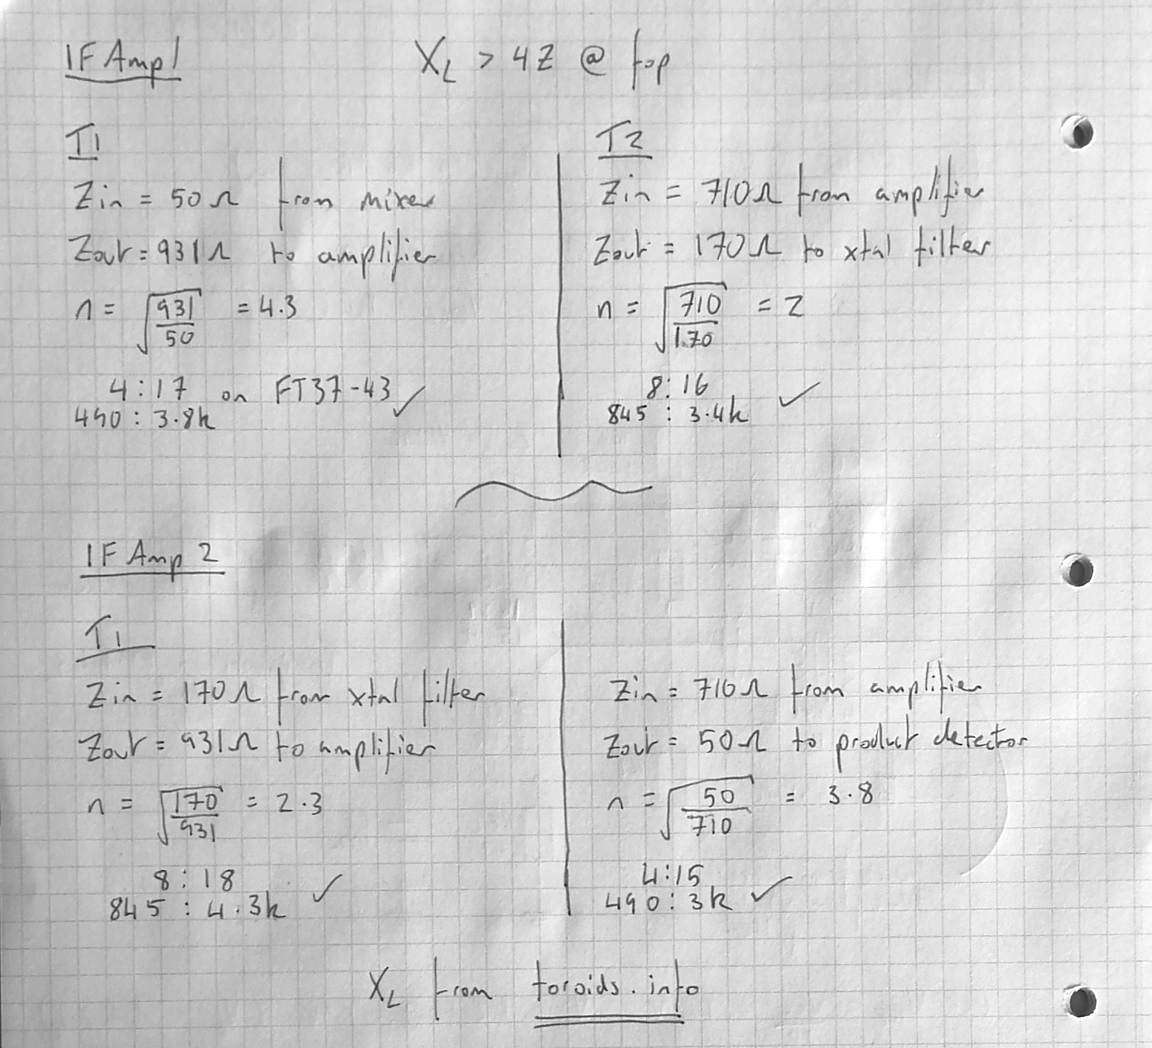 IF Amp1
XL > 4Z @ fop
T1
Zin = 50Ω from mixer
Zout = 931Ω to amplifier
n = √931/50 = 4.3
4:17 on FT37-43 ✓
490 : 3.8k
T2
Zin = 710Ω from amplifier
Zout = 170Ω to xtal filter
n = √710/170 = 2
8:16
845 : 3.4k ✓
IF Amp 2
T1
Zin = 170Ω from xtal filter
Zout = 931Ω to amplifier
n = √170/931 = 2.3
8:18
845 : 4.3k ✓
Zin = 710Ω from amplifier
Zout = 50Ω to product detector
n = √50/710 = 3.8
4:15
490 : 3k ✓
XL from toroids.info